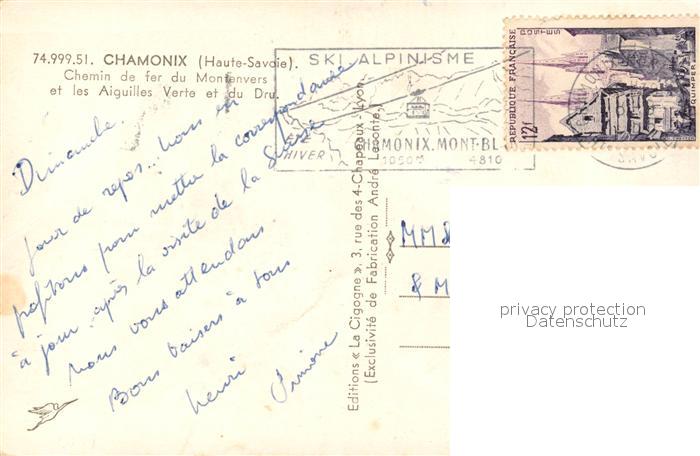 74.999.51. CHAMONIX (Haute-Savoie).
Chemin de fer du Montenvers
et les Aiguilles Verte et du Dru.
SKI ALPINISME
ÉTÉ
HIVER
CHAMONIX.MONT-BL
1050M 4810
REPUBLIQUE FRANÇAISE
POSTES
12f
QUIMPER
SAVOIE
Dimanche.
jour de repos.. nous en
profitons pour mettre la correspondance
"à jour" après la visite de la Suisse
nous vous attendons
Bons baisers à tous
Henri Simone
Editions « La Cigogne », 3, rue des 4-Chapeaux - Lyon
(Exclusivité de Fabrication André Leconte.)
MM
& M
privacy protection
Datenschutz